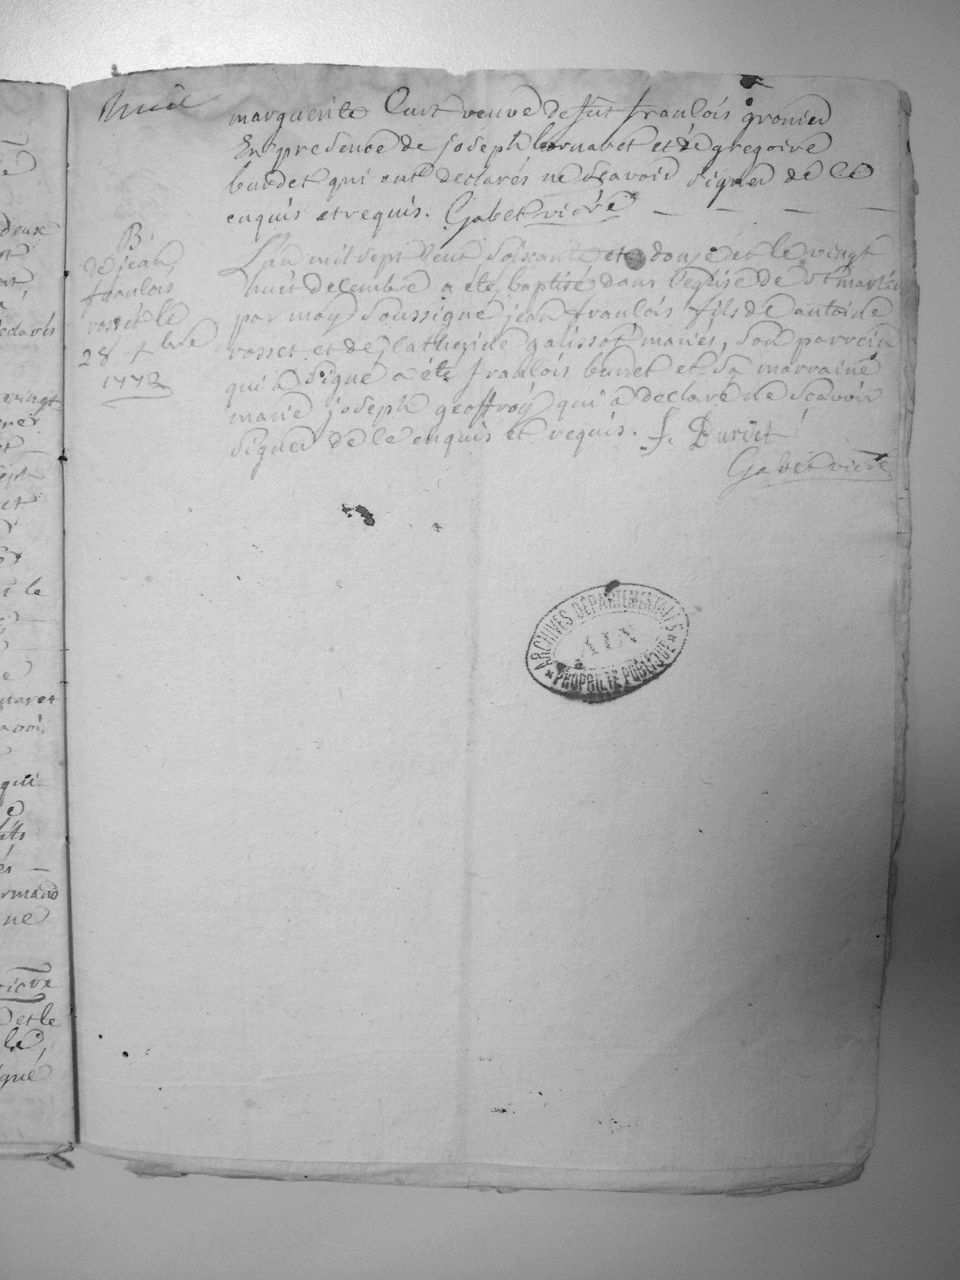 marguerite Cuet veuve de fut francois gronier
En presence de joseph bornaret et de gregoire
burdet qui ont declarés ne scavoir signer de ce
enquis et requis. Gabet vicre
B
de jean
francois
rosset le
28 xbre
1772
L'an mil sept cent soixante et douze et le vingt
huit decembre a été baptisé dans l'eglise de st martin
par moy soussigné jean francois fils de antoine
rosset et de catherine galissot mariés, son parrein
qui a signé a été francois burdet et sa marraine
marie joseph geoffroy qui a declaré ne scavoir
signer de ce enquis et requis. f. Burdet
Gabet vicre
ARCHIVES DÉPARTEMENTALES
AIN
PROPRIÉTÉ PUBLIQUE